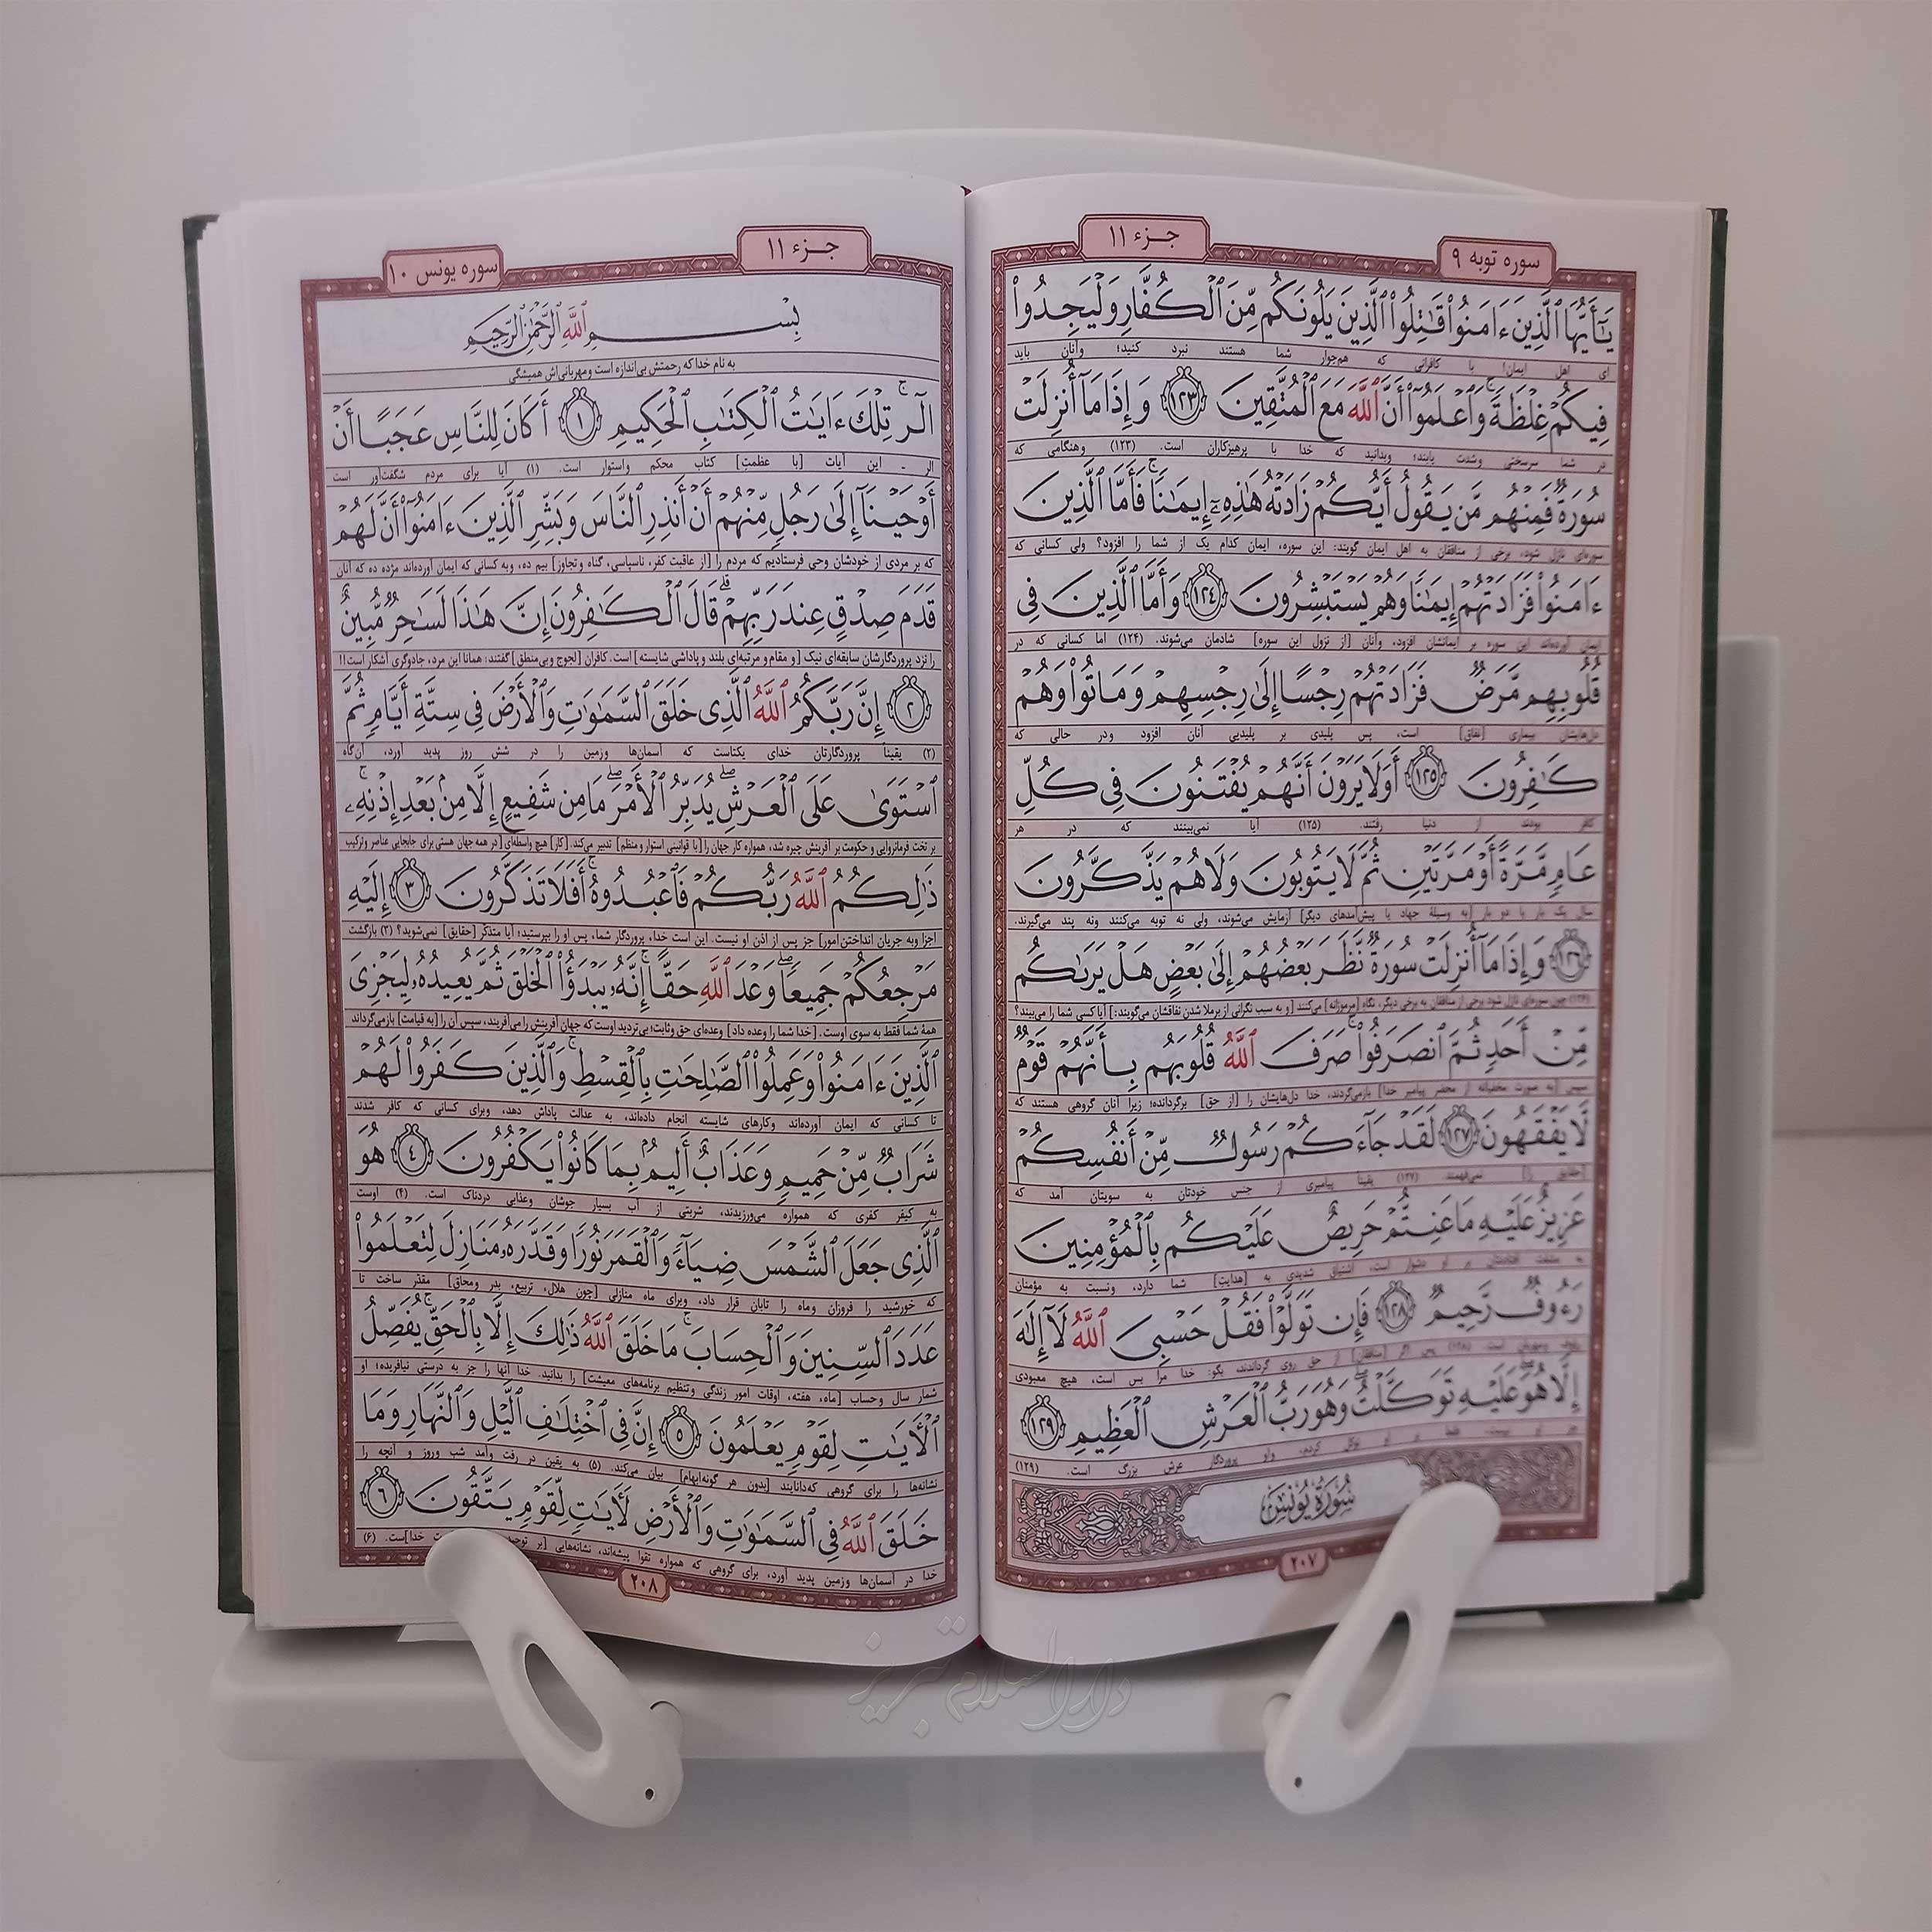 سوره توبه ۹
جزء ۱۱
يَٰٓأَيُّهَا ٱلَّذِينَ ءَامَنُوا۟ قَٰتِلُوا۟ ٱلَّذِينَ يَلُونَكُم مِّنَ ٱلْكُفَّارِ وَلْيَجِدُوا۟
ای اهل ایمان! با کافرانی که هم‌جوار شما هستند نبرد کنید؛ وآنان باید
فِيكُمْ غِلْظَةً ۚ وَٱعْلَمُوٓا۟ أَنَّ ٱللَّهَ مَعَ ٱلْمُتَّقِينَ ١٢٣ وَإِذَا مَآ أُنزِلَتْ
در شما سرسختی وشدت یابند؛ وبدانید که خدا با پرهیزکاران است. (۱۲۳) وهنگامی که
سُورَةٌ فَمِنْهُم مَّن يَقُولُ أَيُّكُمْ زَادَتْهُ هَٰذِهِۦٓ إِيمَٰنًا ۚ فَأَمَّا ٱلَّذِينَ
سوره‌ای نازل شود، برخی از منافقان به اهل ایمان گویند: این سوره، ایمان کدام یک از شما را افزود؟ ولی کسانی که
ءَامَنُوا۟ فَزَادَتْهُمْ إِيمَٰنًا وَهُمْ يَسْتَبْشِرُونَ ١٢٤ وَأَمَّا ٱلَّذِينَ فِى
ایمان آورده‌اند این سوره بر ایمانشان افزود، وآنان [از نزول این سوره] شادمان می‌شوند. (۱۲۴) اما کسانی که در
قُلُوبِهِم مَّرَضٌ فَزَادَتْهُمْ رِجْسًا إِلَىٰ رِجْسِهِمْ وَمَاتُوا۟ وَهُمْ
دل‌هایشان بیماری [نفاق] است، پس پلیدی بر پلیدیی آنان افزود ودر حالی که
كَٰفِرُونَ ١٢٥ أَوَلَا يَرَوْنَ أَنَّهُمْ يُفْتَنُونَ فِى كُلِّ
کافر بودند از دنیا رفتند. (۱۲۵) آیا نمی‌بینند که در هر
عَامٍ مَّرَّةً أَوْ مَرَّتَيْنِ ثُمَّ لَا يَتُوبُونَ وَلَا هُمْ يَذَّكَّرُونَ
سال یک بار یا دو بار [به وسیلهٔ جهاد یا پیش‌آمدهای دیگر] آزمایش می‌شوند، ولی نه توبه می‌کنند ونه پند می‌گیرند.
١٢٦ وَإِذَا مَآ أُنزِلَتْ سُورَةٌ نَّظَرَ بَعْضُهُمْ إِلَىٰ بَعْضٍ هَلْ يَرَىٰكُم
(۱۲۶) چون سوره‌ای نازل شود برخی از منافقان به برخی دیگر، نگاه [مرموزانه] می‌کنند [و به سبب نگرانی از برملا شدن نفاقشان می‌گویند:] آیا کسی شما را می‌بیند؟
مِّنْ أَحَدٍ ثُمَّ ٱنصَرَفُوا۟ ۚ صَرَفَ ٱللَّهُ قُلُوبَهُم بِأَنَّهُمْ قَوْمٌ
سپس [به صورت مخفیانه از محضر پیامبر خدا] بازمی‌گردند، خدا دل‌هایشان را [از حق] برگردانده؛ زیرا آنان گروهی هستند که
لَّا يَفْقَهُونَ ١٢٧ لَقَدْ جَآءَكُمْ رَسُولٌ مِّنْ أَنفُسِكُمْ
[حقایق را] نمی‌فهمند (۱۲۷) یقیناً پیامبری از جنس خودتان به سویتان آمد که
عَزِيزٌ عَلَيْهِ مَا عَنِتُّمْ حَرِيصٌ عَلَيْكُم بِٱلْمُؤْمِنِينَ
به مشقت افتادنتان بر او دشوار است، اشتیاق شدیدی به [هدایت] شما دارد، ونسبت به مؤمنان
رَءُوفٌ رَّحِيمٌ ١٢٨ فَإِن تَوَلَّوْا۟ فَقُلْ حَسْبِىَ ٱللَّهُ لَآ إِلَٰهَ
رئوف ومهربان است. (۱۲۸) پس اگر [منافقان] از حق روی گرداندند، بگو: خدا مرا بس است، هیچ معبودی
إِلَّا هُوَ ۖ عَلَيْهِ تَوَكَّلْتُ ۖ وَهُوَ رَبُّ ٱلْعَرْشِ ٱلْعَظِيمِ ١٢٩
جز او نیست، فقط بر او توکل کردم، واو پروردگار عرش بزرگ است. (۱۲۹)
سُورَةُ يُونُسَ
۲۰۷
جزء ۱۱
سوره یونس ۱۰
بِسْمِ ٱللَّهِ ٱلرَّحْمَٰنِ ٱلرَّحِيمِ
به نام خدا که رحمتش بی‌اندازه است ومهربانی‌اش همیشگی
الٓر ۚ تِلْكَ ءَايَٰتُ ٱلْكِتَٰبِ ٱلْحَكِيمِ ١ أَكَانَ لِلنَّاسِ عَجَبًا أَنْ
الر ـ این آیات [با عظمت] کتاب محکم واستوار است. (۱) آیا برای مردم شگفت‌آور است
أَوْحَيْنَآ إِلَىٰ رَجُلٍ مِّنْهُمْ أَنْ أَنذِرِ ٱلنَّاسَ وَبَشِّرِ ٱلَّذِينَ ءَامَنُوٓا۟ أَنَّ لَهُمْ
که بر مردی از خودشان وحی فرستادیم که مردم را [از عاقبت کفر، ناسپاسی، گناه و تجاوز] بیم ده، وبه کسانی که ایمان آورده‌اند مژده ده که آنان
قَدَمَ صِدْقٍ عِندَ رَبِّهِمْ ۗ قَالَ ٱلْكَٰفِرُونَ إِنَّ هَٰذَا لَسَٰحِرٌ مُّبِينٌ
را نزد پروردگارشان سابقه‌ای نیک [و مقام و مرتبه‌ای بلند و پاداشی شایسته] است. کافران [لجوج وبی‌منطق] گفتند: همانا این مرد، جادوگری آشکار است!!
٢ إِنَّ رَبَّكُمُ ٱللَّهُ ٱلَّذِى خَلَقَ ٱلسَّمَٰوَٰتِ وَٱلْأَرْضَ فِى سِتَّةِ أَيَّامٍ ثُمَّ
(۲) یقیناً پروردگارتان خدای یکتاست که آسمان‌ها وزمین را در شش روز پدید آورد، آن‌گاه
ٱسْتَوَىٰ عَلَى ٱلْعَرْشِ ۖ يُدَبِّرُ ٱلْأَمْرَ ۖ مَا مِن شَفِيعٍ إِلَّا مِنۢ بَعْدِ إِذْنِهِۦ ۚ
بر تخت فرمانروایی و حکومت بر آفرینش چیره شد، همواره کار جهان را [با قوانینی استوار و منظم] تدبیر می‌کند. [کار] هیچ واسطه‌ای [در همه جهان هستی برای جابجایی عناصر وترکیب
ذَٰلِكُمُ ٱللَّهُ رَبُّكُمْ فَٱعْبُدُوهُ ۚ أَفَلَا تَذَكَّرُونَ ٣ إِلَيْهِ
اجزا وبه جریان انداختن امور] جز پس از اذن او نیست. این است خدا، پروردگار شما، پس او را بپرستید؛ آیا متذکر [حقایق] نمی‌شوید؟ (۳) بازگشت
مَرْجِعُكُمْ جَمِيعًا ۖ وَعْدَ ٱللَّهِ حَقًّا ۚ إِنَّهُۥ يَبْدَؤُا۟ ٱلْخَلْقَ ثُمَّ يُعِيدُهُۥ لِيَجْزِىَ
همهٔ شما فقط به سوی اوست. [خدا شما را وعده داد] وعده‌ای حق وثابت؛ بی‌تردید اوست که جهان آفرینش را می‌آفریند، سپس آن را [به قیامت] بازمی‌گرداند
ٱلَّذِينَ ءَامَنُوا۟ وَعَمِلُوا۟ ٱلصَّٰلِحَٰتِ بِٱلْقِسْطِ ۚ وَٱلَّذِينَ كَفَرُوا۟ لَهُمْ
تا کسانی که ایمان آورده‌اند وکارهای شایسته انجام داده‌اند، به عدالت پاداش دهد، وبرای کسانی که کافر شدند
شَرَابٌ مِّنْ حَمِيمٍ وَعَذَابٌ أَلِيمٌۢ بِمَا كَانُوا۟ يَكْفُرُونَ ٤ هُوَ
به کیفر کفری که همواره می‌ورزیدند، شربتی از آب بسیار جوشان وعذابی دردناک است. (۴) اوست
ٱلَّذِى جَعَلَ ٱلشَّمْسَ ضِيَآءً وَٱلْقَمَرَ نُورًا وَقَدَّرَهُۥ مَنَازِلَ لِتَعْلَمُوا۟
که خورشید را فروزان وماه را تابان قرار داد، وبرای ماه منازلی [چون هلال، تربیع، بدر ومحاق] مقدّر ساخت تا
عَدَدَ ٱلسِّنِينَ وَٱلْحِسَابَ ۚ مَا خَلَقَ ٱللَّهُ ذَٰلِكَ إِلَّا بِٱلْحَقِّ ۚ يُفَصِّلُ
شمار سال وحساب [ماه، هفته، اوقات امور زندگی وتنظیم برنامه‌های معیشت] را بدانید. خدا آنها را جز به درستی نیافریده؛ او
ٱلْءَايَٰتِ لِقَوْمٍ يَعْلَمُونَ ٥ إِنَّ فِى ٱخْتِلَٰفِ ٱلَّيْلِ وَٱلنَّهَارِ وَمَا
نشانه‌ها را برای گروهی که دانایند [بدون هر گونه ابهام] بیان می‌کند. (۵) به یقین در رفت وآمد شب وروز و آنچه را
خَلَقَ ٱللَّهُ فِى ٱلسَّمَٰوَٰتِ وَٱلْأَرْضِ لَءَايَٰتٍ لِّقَوْمٍ يَتَّقُونَ ٦
خدا در آسمان‌ها وزمین پدید آورد، برای گروهی که همواره تقوا پیشه‌اند، نشانه‌هایی [بر خدا] است. (۶)
۲۰۸
دارالسلام تبریز